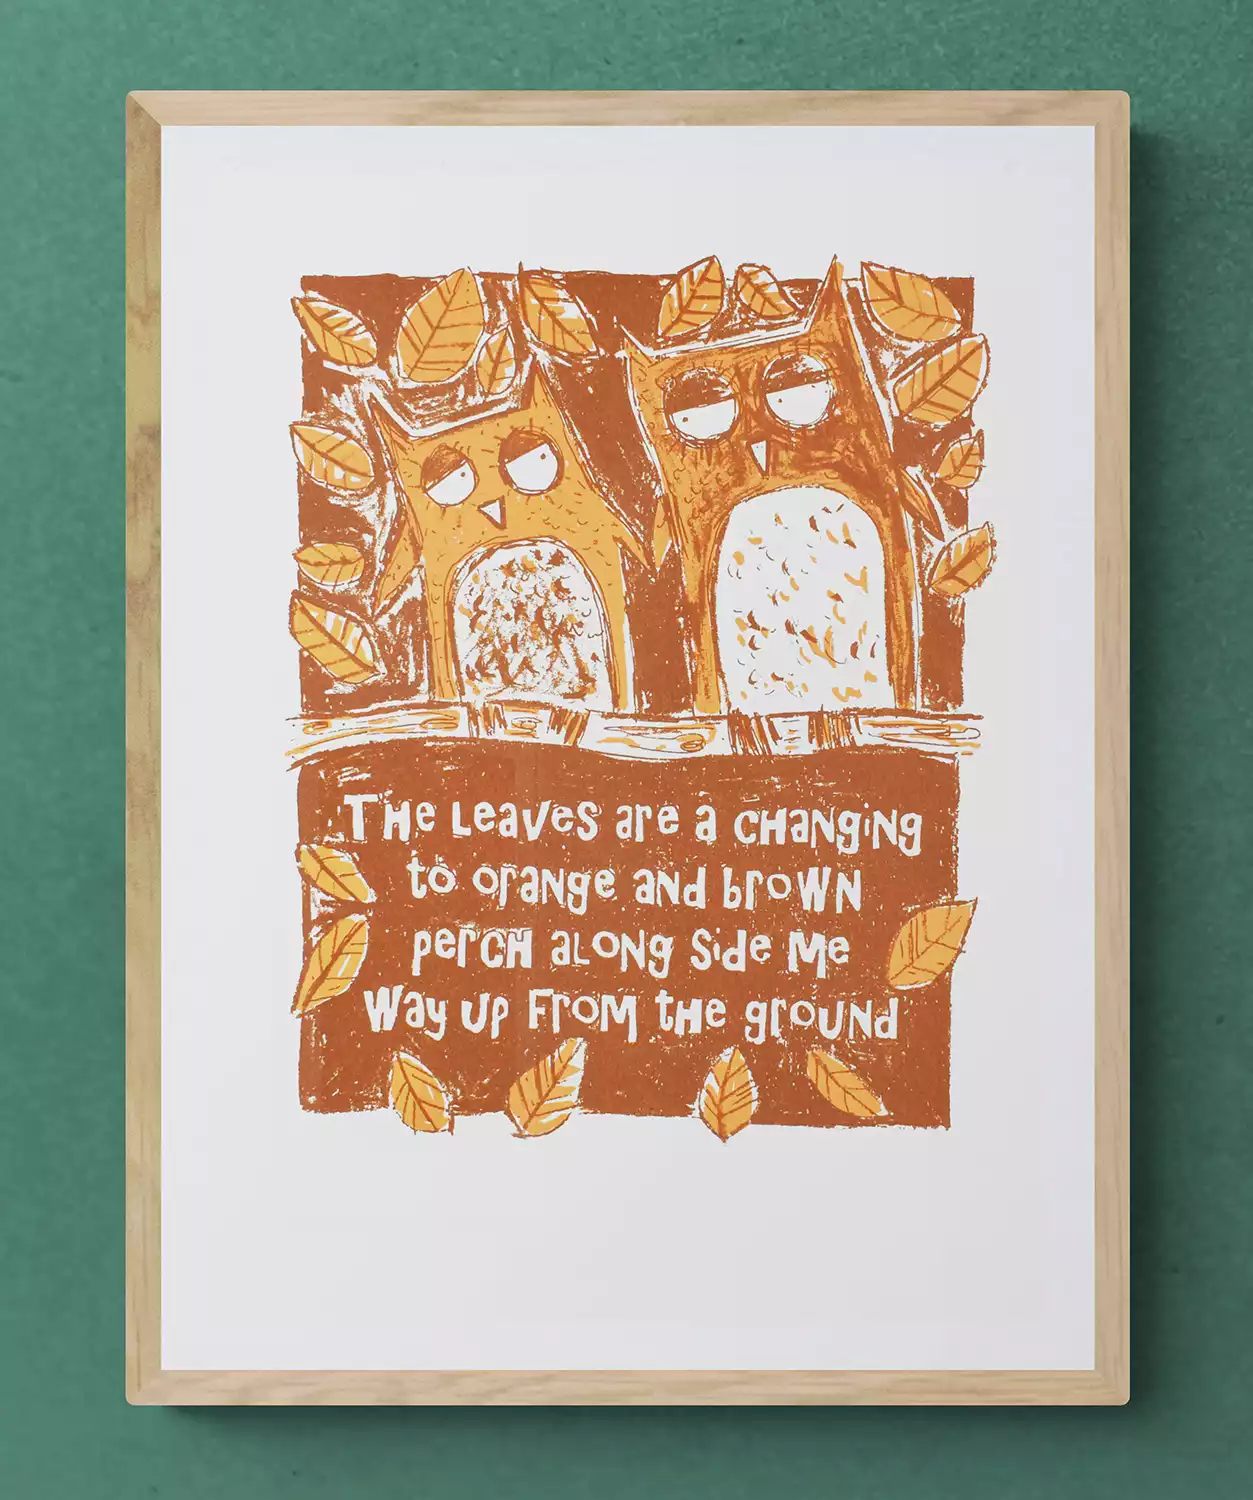 THe Leaves are a CHanging
to orange and brown
perch along side me
way up from the ground